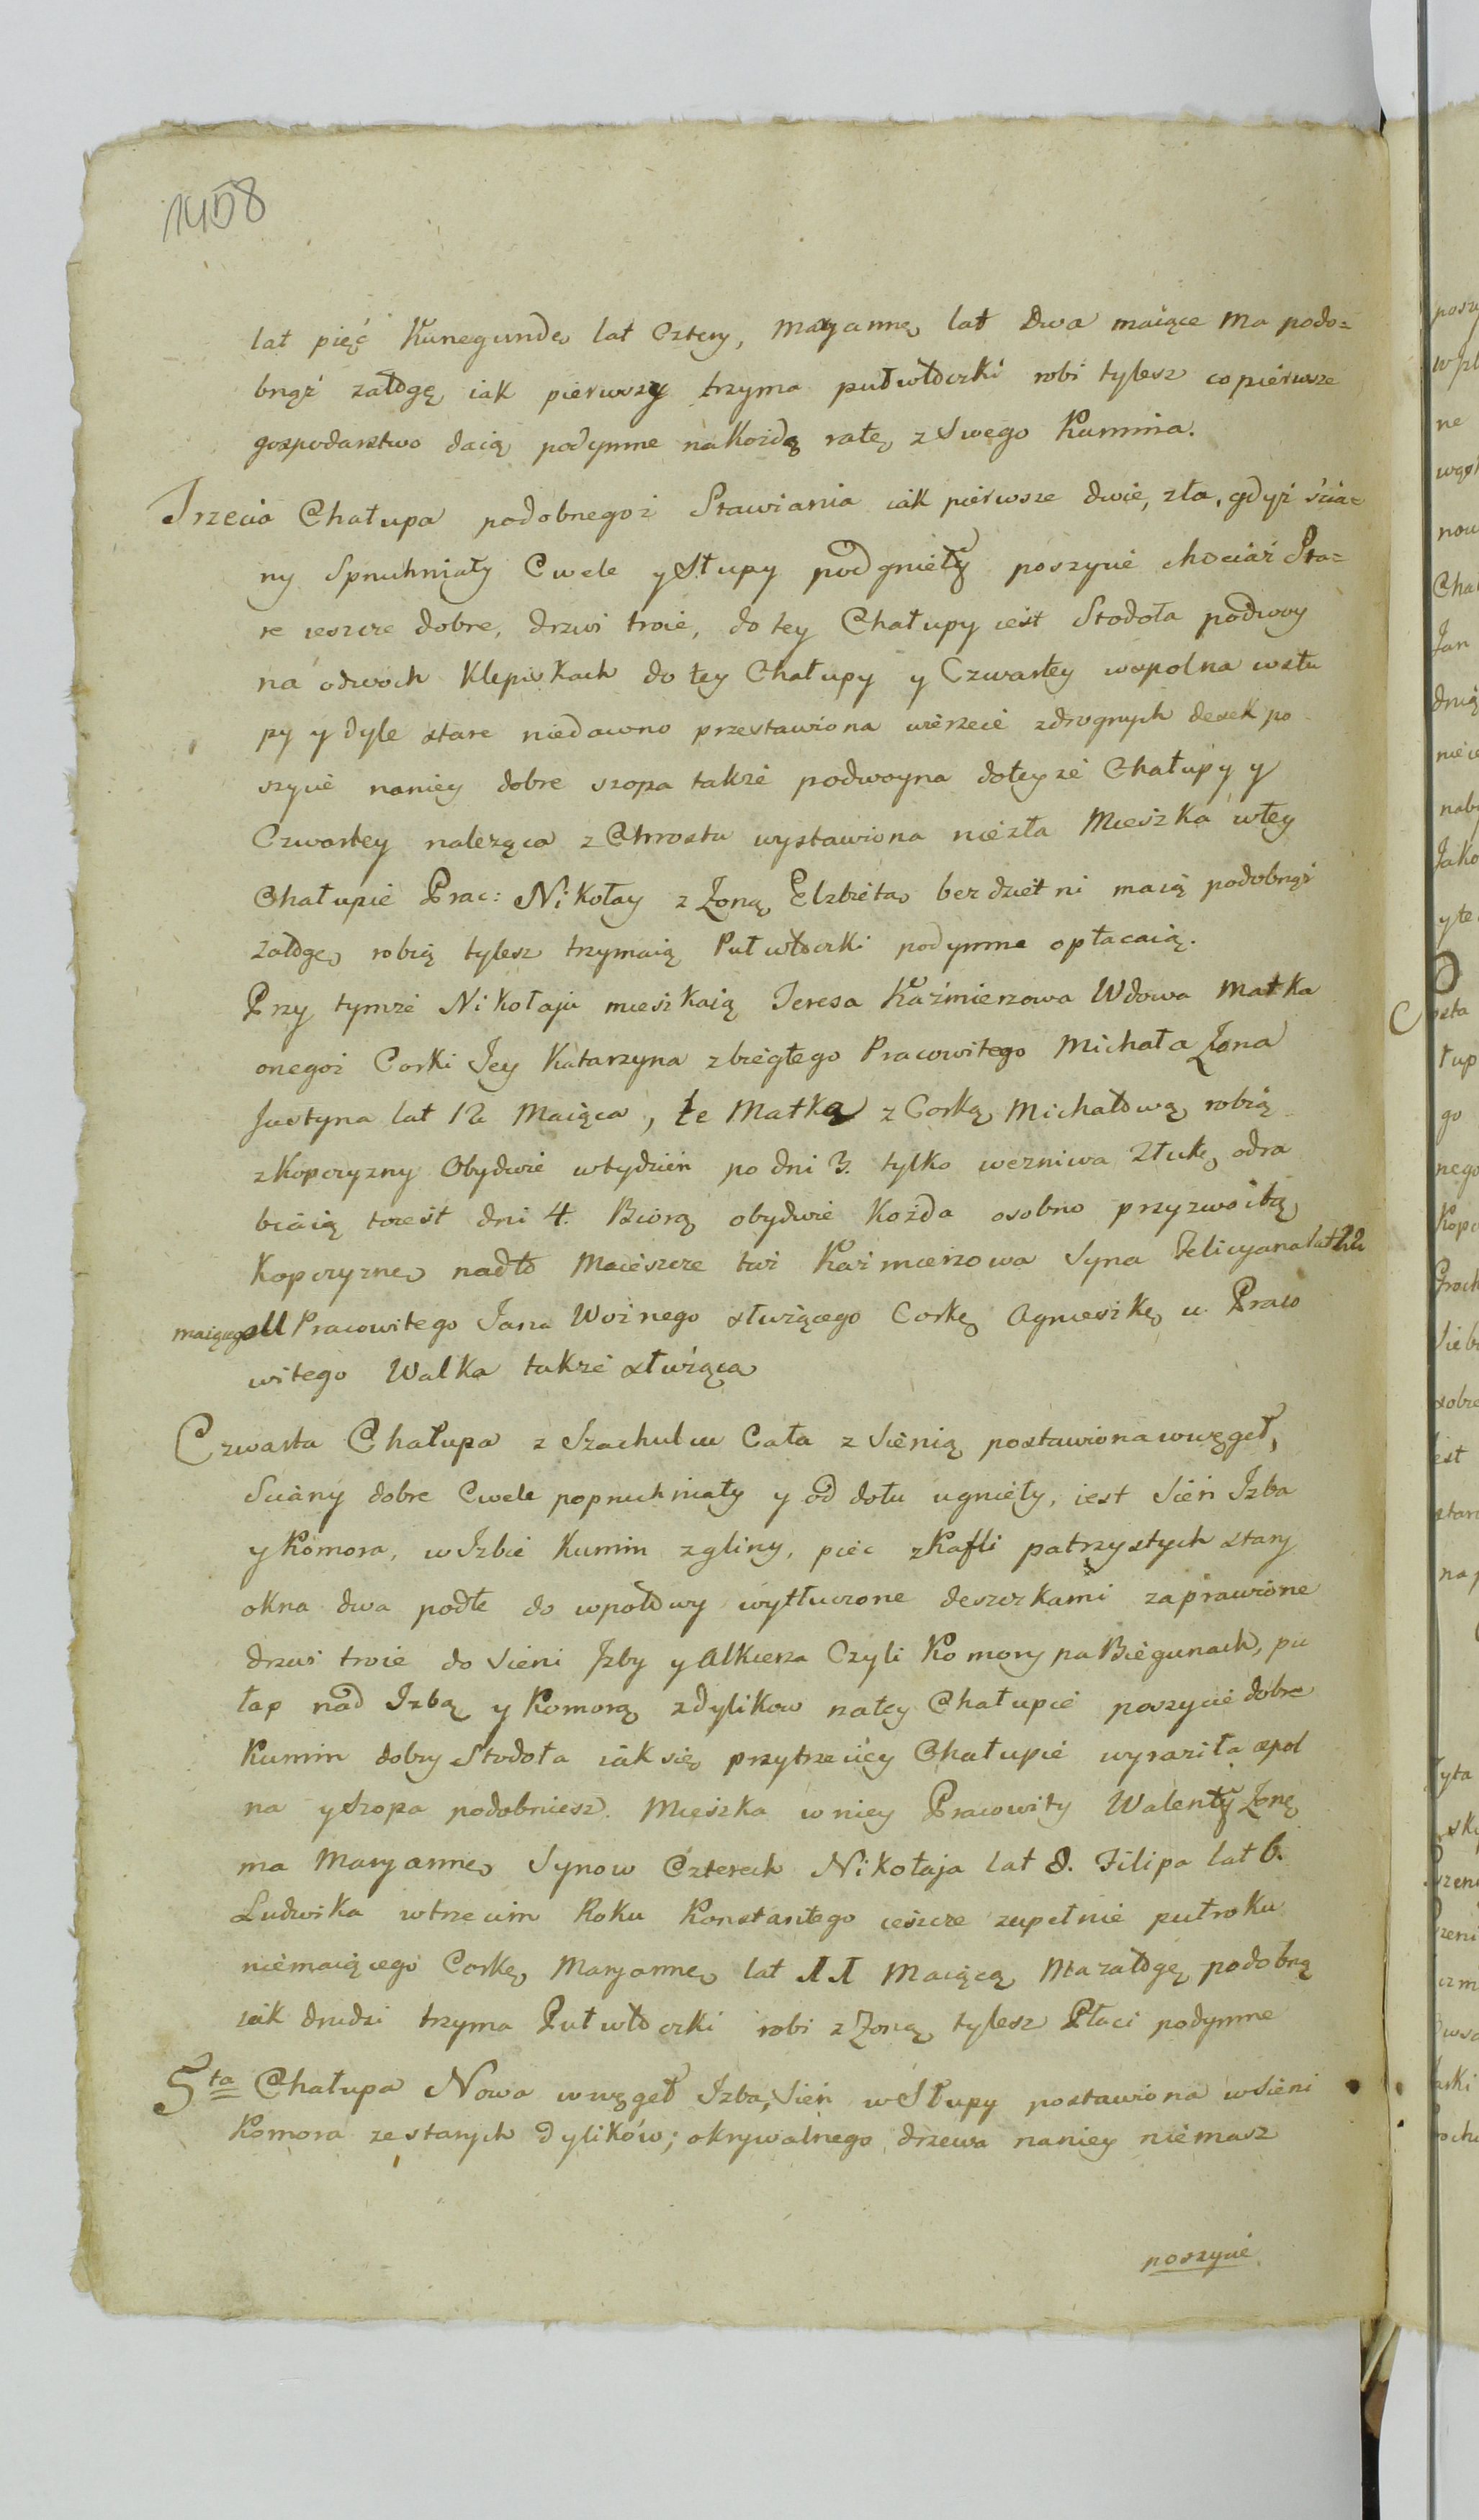 1458
lat pięć Kunegundę lat Cztery, Maryannę lat Dwa maiące Ma podo=
bnąż załogę iak pierwszy trzyma pułwłoczki robi tylesz co pierwsze
gospodarstwo daią podymne na Kożdą ratę z Swego Kumina.
Trzecia Chałupa podobnegoż Stawiania iak pierwsze dwie, zła, gdyż ścia=
ny Spruchniały Cwele y Słupy podgnieły poszycie chociaż Sta=
re ieszcze dobre, drzwi troie, do tey Chałupy iest Stodoła podwoy
na odwoch Klepiskach do tey Chałupy y Czwartey wspolna wsłu
py y dyle stare niedawno przestawiona wierzeie zdrognych desek po
szycie naniey dobre szopa także podwoyna doteyże Chałupy y
Czwartey należąca z Chrostu wystawiona niezła Mieszka wtey
Chałupie Prac: Nikołay z Zoną Elzbietą bezdzietni maią podobnąż
załogę robią tylesz trzymaią Pułwłoczki podymne opłacaią.
Przy tymże Nikołaju mieszkaią Teresa Kaźmierzowa Wdowa Matka
onegoż Corki Jey Katarzyna zbiegłego Pracowitego Michała Zona
Justyna lat 12 Maiąca, te Matka z Corką Michałową robią
z Kopczyzny Obydwie wtydzień po dni 3. tylko wezniwa Ztukę odra
biaią toiest dni 4. Biorą obydwie Kożda osobno przyzwoitą
Kopczyznę nadto Maieszcze taż Kaźmierzowa Syna Felicyana lat 22
maiącego U Pracowitego Jana Woźnego służącego Corkę Agnieszkę u Praco
witego Walka także służąca
Czwarta Chałupa z Szachulcu Cała z Sienią postawiona wwęgeł,
Sciany dobre Cwele popruchniały y od dołu ugnieły, iest Sień Izba
y Komora, w Izbie Kumin z gliny, piec z Kafli patrzystych stary
okna dwa podłe do wpołowy wytłuczone deszczkami zaprawione
drzwi troie do Sieni Izby y Alkierza Czyli Komory na Biegunach, pu
łap nad Izbą y Komorą z dylikow natey Chałupie poszycie dobre
Kumin dobry Stodoła iak się przytrzeciey Chałupie wyraziła spol
na y Szopa podobniesz. Mieszka w niey Pracowity Walenty Zonę
ma Maryannę Synow Czterech Nikołaja lat 8. Filipa lat 6.
Ludwika wtrzecim Roku Konstantego ieszcze zupełnie pułroku
niemaiącego Corkę Maryannę lat 11 Maiącą Ma załogę podobną
iak drudzi trzyma Pułwłoczki robi z Zoną tylesz Płaci podymne
5ta Chałupa Nowa w węgeł Izba, Sień w Słupy postawiona wsieni
Komora ze starych dylików; okrywalnego drzewa naniey niemasz
poszycie